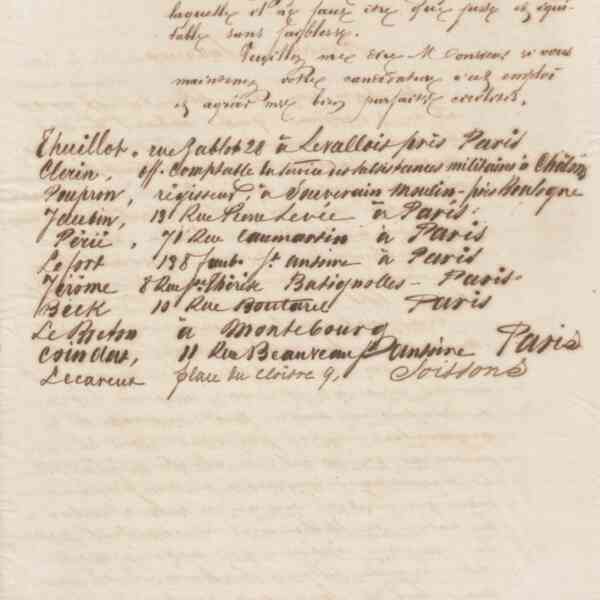 laquelle il ne faut être que juste et équi-
table sans faiblesse.
Veuillez me dire M Monsieur si vous
maintenez votre candidature à cet emploi
et agréer mes bien parfaites civilités.
Thuillot, rue Gablot 28 à Levallois près Paris
Clerin, off. comptable du service des subsistances militaires à Châlons
Poupron, régisseur, à Souverain Moulin - près Boulogne
13 Rue Pierre Levée à Paris.
Périé, 71 Rue Caumartin à Paris
Lefort 138 faubg St antoine à Paris
Jérôme 8 Rue Ste Thérèse Batignolles - Paris
Beck 10 Rue Boutarel Paris
Le Breton à Montebourg
Coindas, 11 Rue Beauveau St antoine Paris
Lecareux place du cloitre 9, Soissons